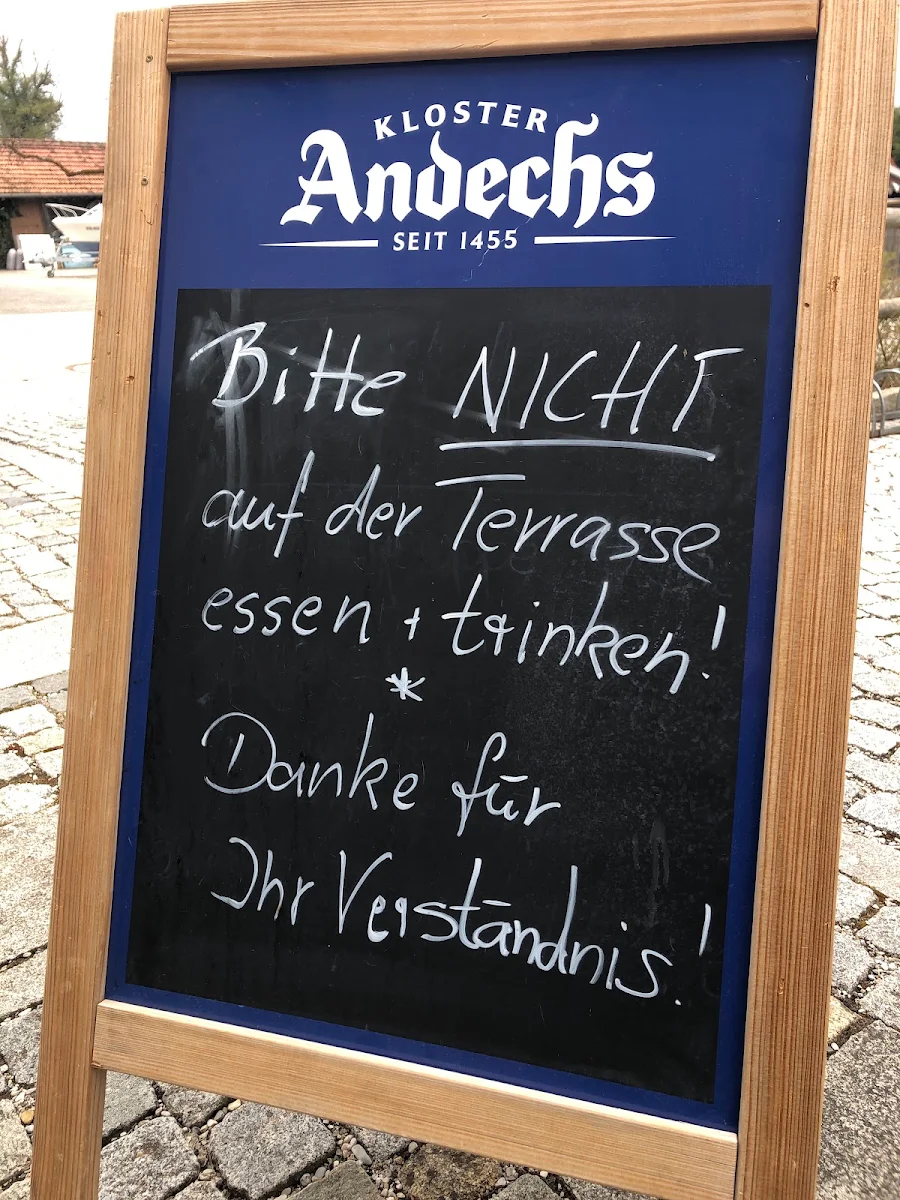 KLOSTER
Andechs
SEIT 1455
Bitte NICHT
auf der Terrasse
essen + trinken!
*
Danke für
Ihr Verständnis!